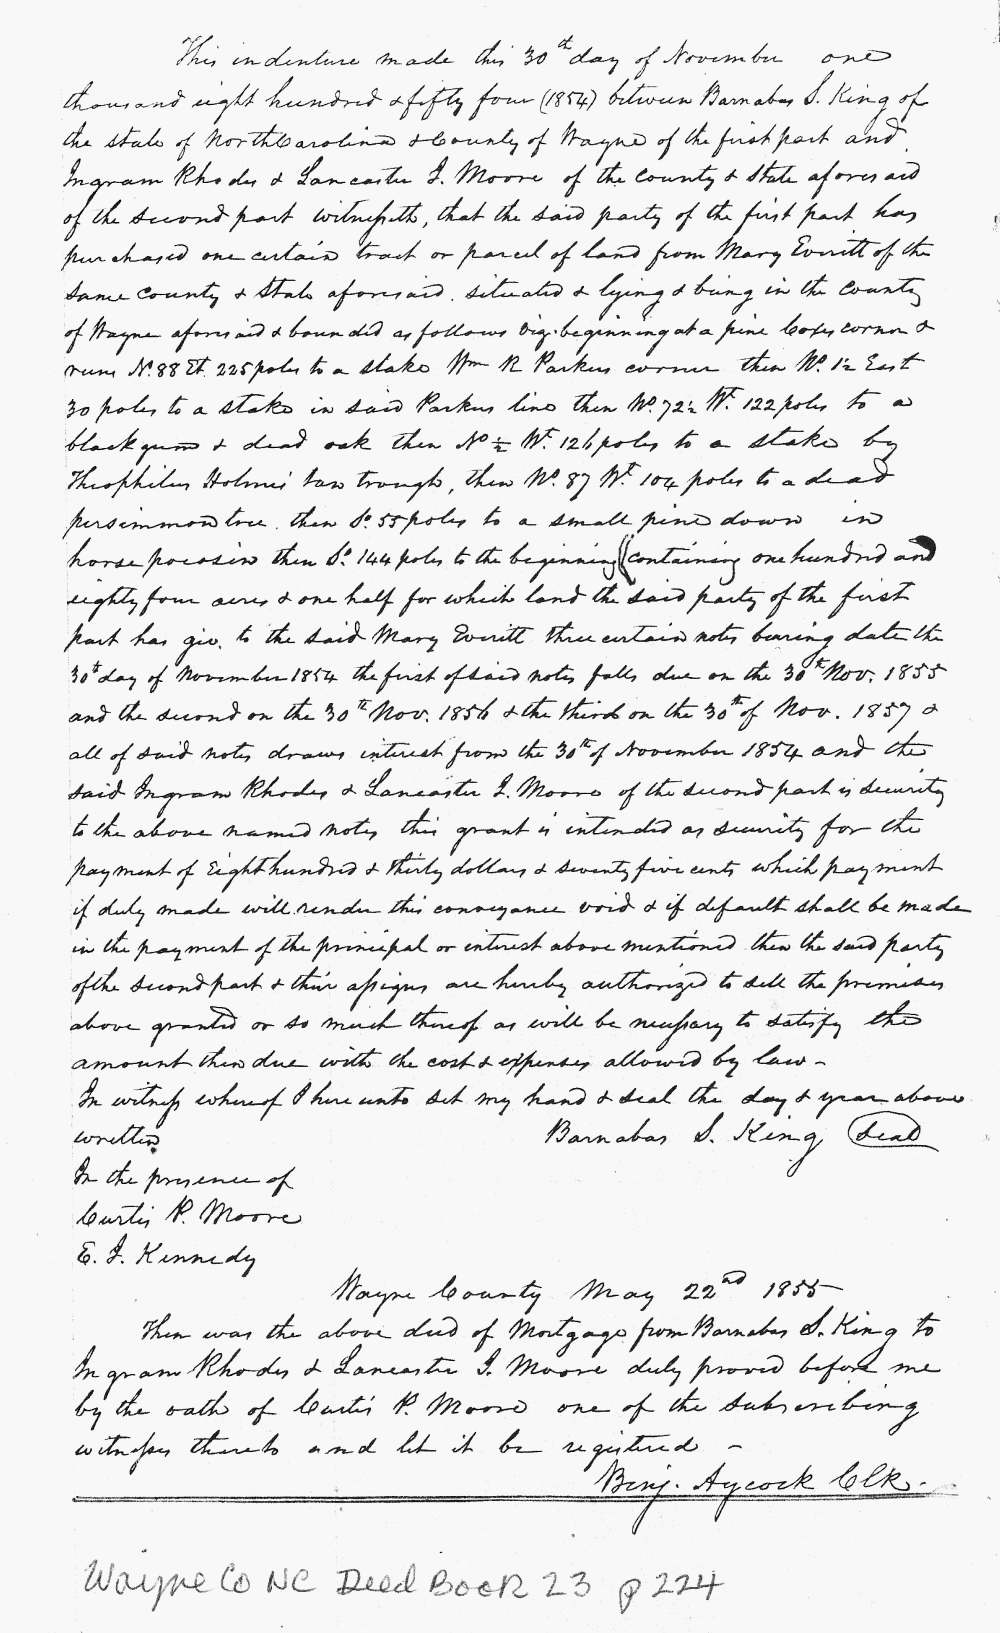 This indenture made this 30th day of November one
thousand eight hundred & fifty four (1854) between Barnabas S. King of
the state of North Carolina & County of Wayne of the first part and
Ingram Rhodes & Lancaster J. Moore of the County & State aforesaid
of the second part witnesseth, that the said party of the first part has
purchased one certain tract or parcel of land from Mary Everitt of the
same county & State aforesaid. situated & lying & being in the County
of Wayne aforesaid & bounded as follows viz. beginning at a pine Coxes corner &
runs No. 88 Et. 225 poles to a stake Wm R Parkers corner then No. 1½ East
30 poles to a stake in said Parkers line then No. 72½ Wt. 122 poles to a
blackgum & dead oak then No ½ Wt. 126 poles to a stake by
Theophilus Holmes tan trough, then No. 87 Wt. 104 poles to a dead
persimmon tree. then So. 55 poles to a small pine down in
horse pocosin then So. 144 poles to the beginning (containing one hundred and
eighty four acres & one half for which land the said party of the first
part has giv. to the said Mary Everitt three certain notes bearing date the
30th day of November 1854 the first of said notes falls due on the 30th Nov. 1855
and the second on the 30th Nov. 1856 & the third on the 30th of Nov. 1857 &
all of said notes draws interest from the 30th of November 1854 and the
said Ingram Rhodes & Lancaster J. Moore of the second part is security
to the above named notes this grant is intended as security for the
payment of Eight hundred & thirty dollars & seventy five cents which payment
if duly made will render this conveyance void & if default shall be made
in the payment of the principal or interest above mentioned then the said party
of the second part & their assigns are hereby authorized to sell the premises
above granted or so much thereof as will be necessary to satisfy the
amount then due with the cost & expenses allowed by law -
In witness whereof I hereunto set my hand & seal the day & year above
written Barnabas S. King Seal
In the presence of
Curtis P. Moore
E. J. Kennedy
Wayne County May 22nd 1855
Then was the above deed of Mortgage from Barnabas S. King to
Ingram Rhodes & Lancaster J. Moore duly proved before me
by the oath of Curtis P. Moore one of the subscribing
witnesses thereto and let it be registered -
Benj. Aycock Clk.
Wayne Co NC Deed Book 23 p 224